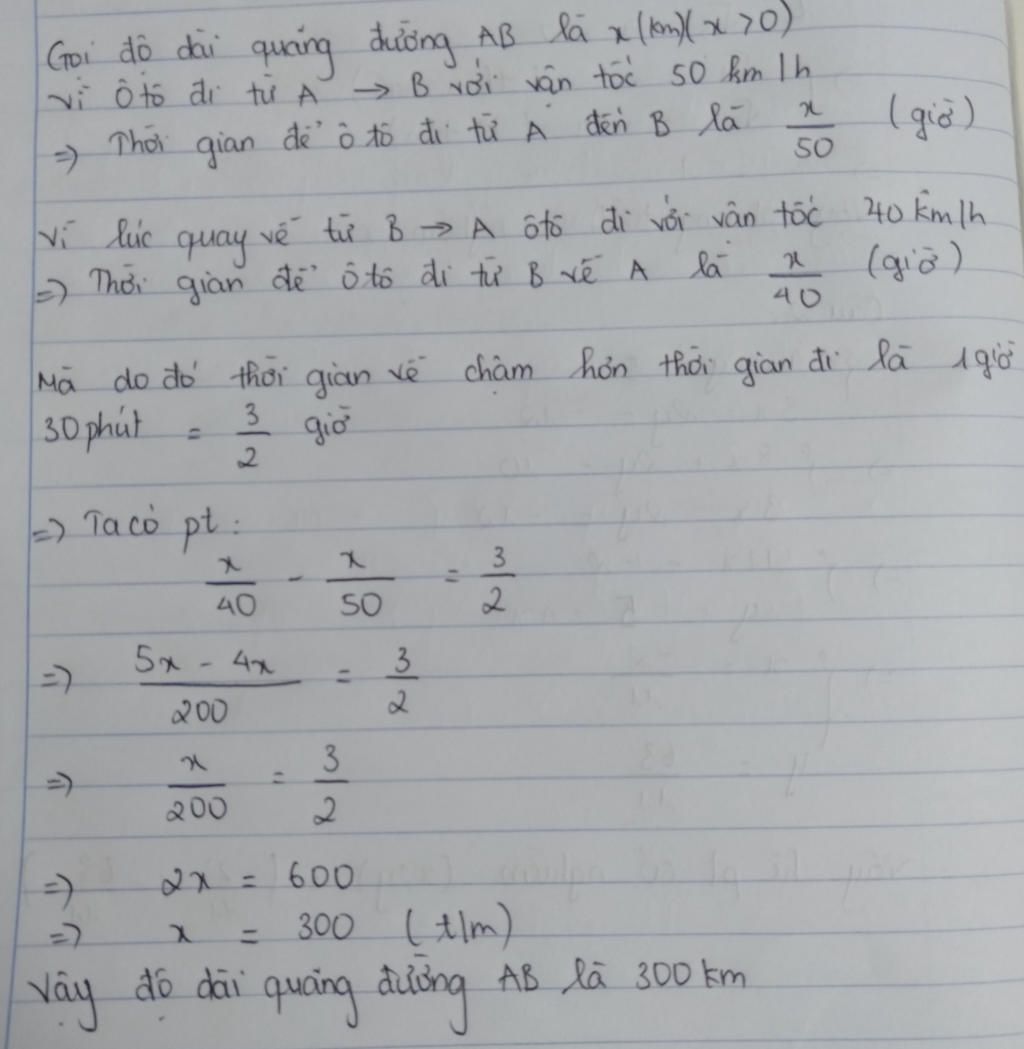 Gọi độ dài quãng đường AB là x (km)( x > 0)
Vì Ôtô đi từ A → B với vận tốc 50 km/h
=> Thời gian để ô tô đi từ A đến B là x/50 (giờ)
Vì lúc quay về từ B → A ôtô đi với vận tốc 40 km/h
=> Thời gian để ô tô đi từ B về A là x/40 (giờ)
Mà do đó thời gian về chậm hơn thời gian đi là 1 giờ
30 phút = 3/2 giờ
=> Ta có pt :
x/40 - x/50 = 3/2
=> (5x - 4x)/200 = 3/2
=> x/200 = 3/2
=> 2x = 600
=> x = 300 (t/m)
Vậy độ dài quãng đường AB là 300 km